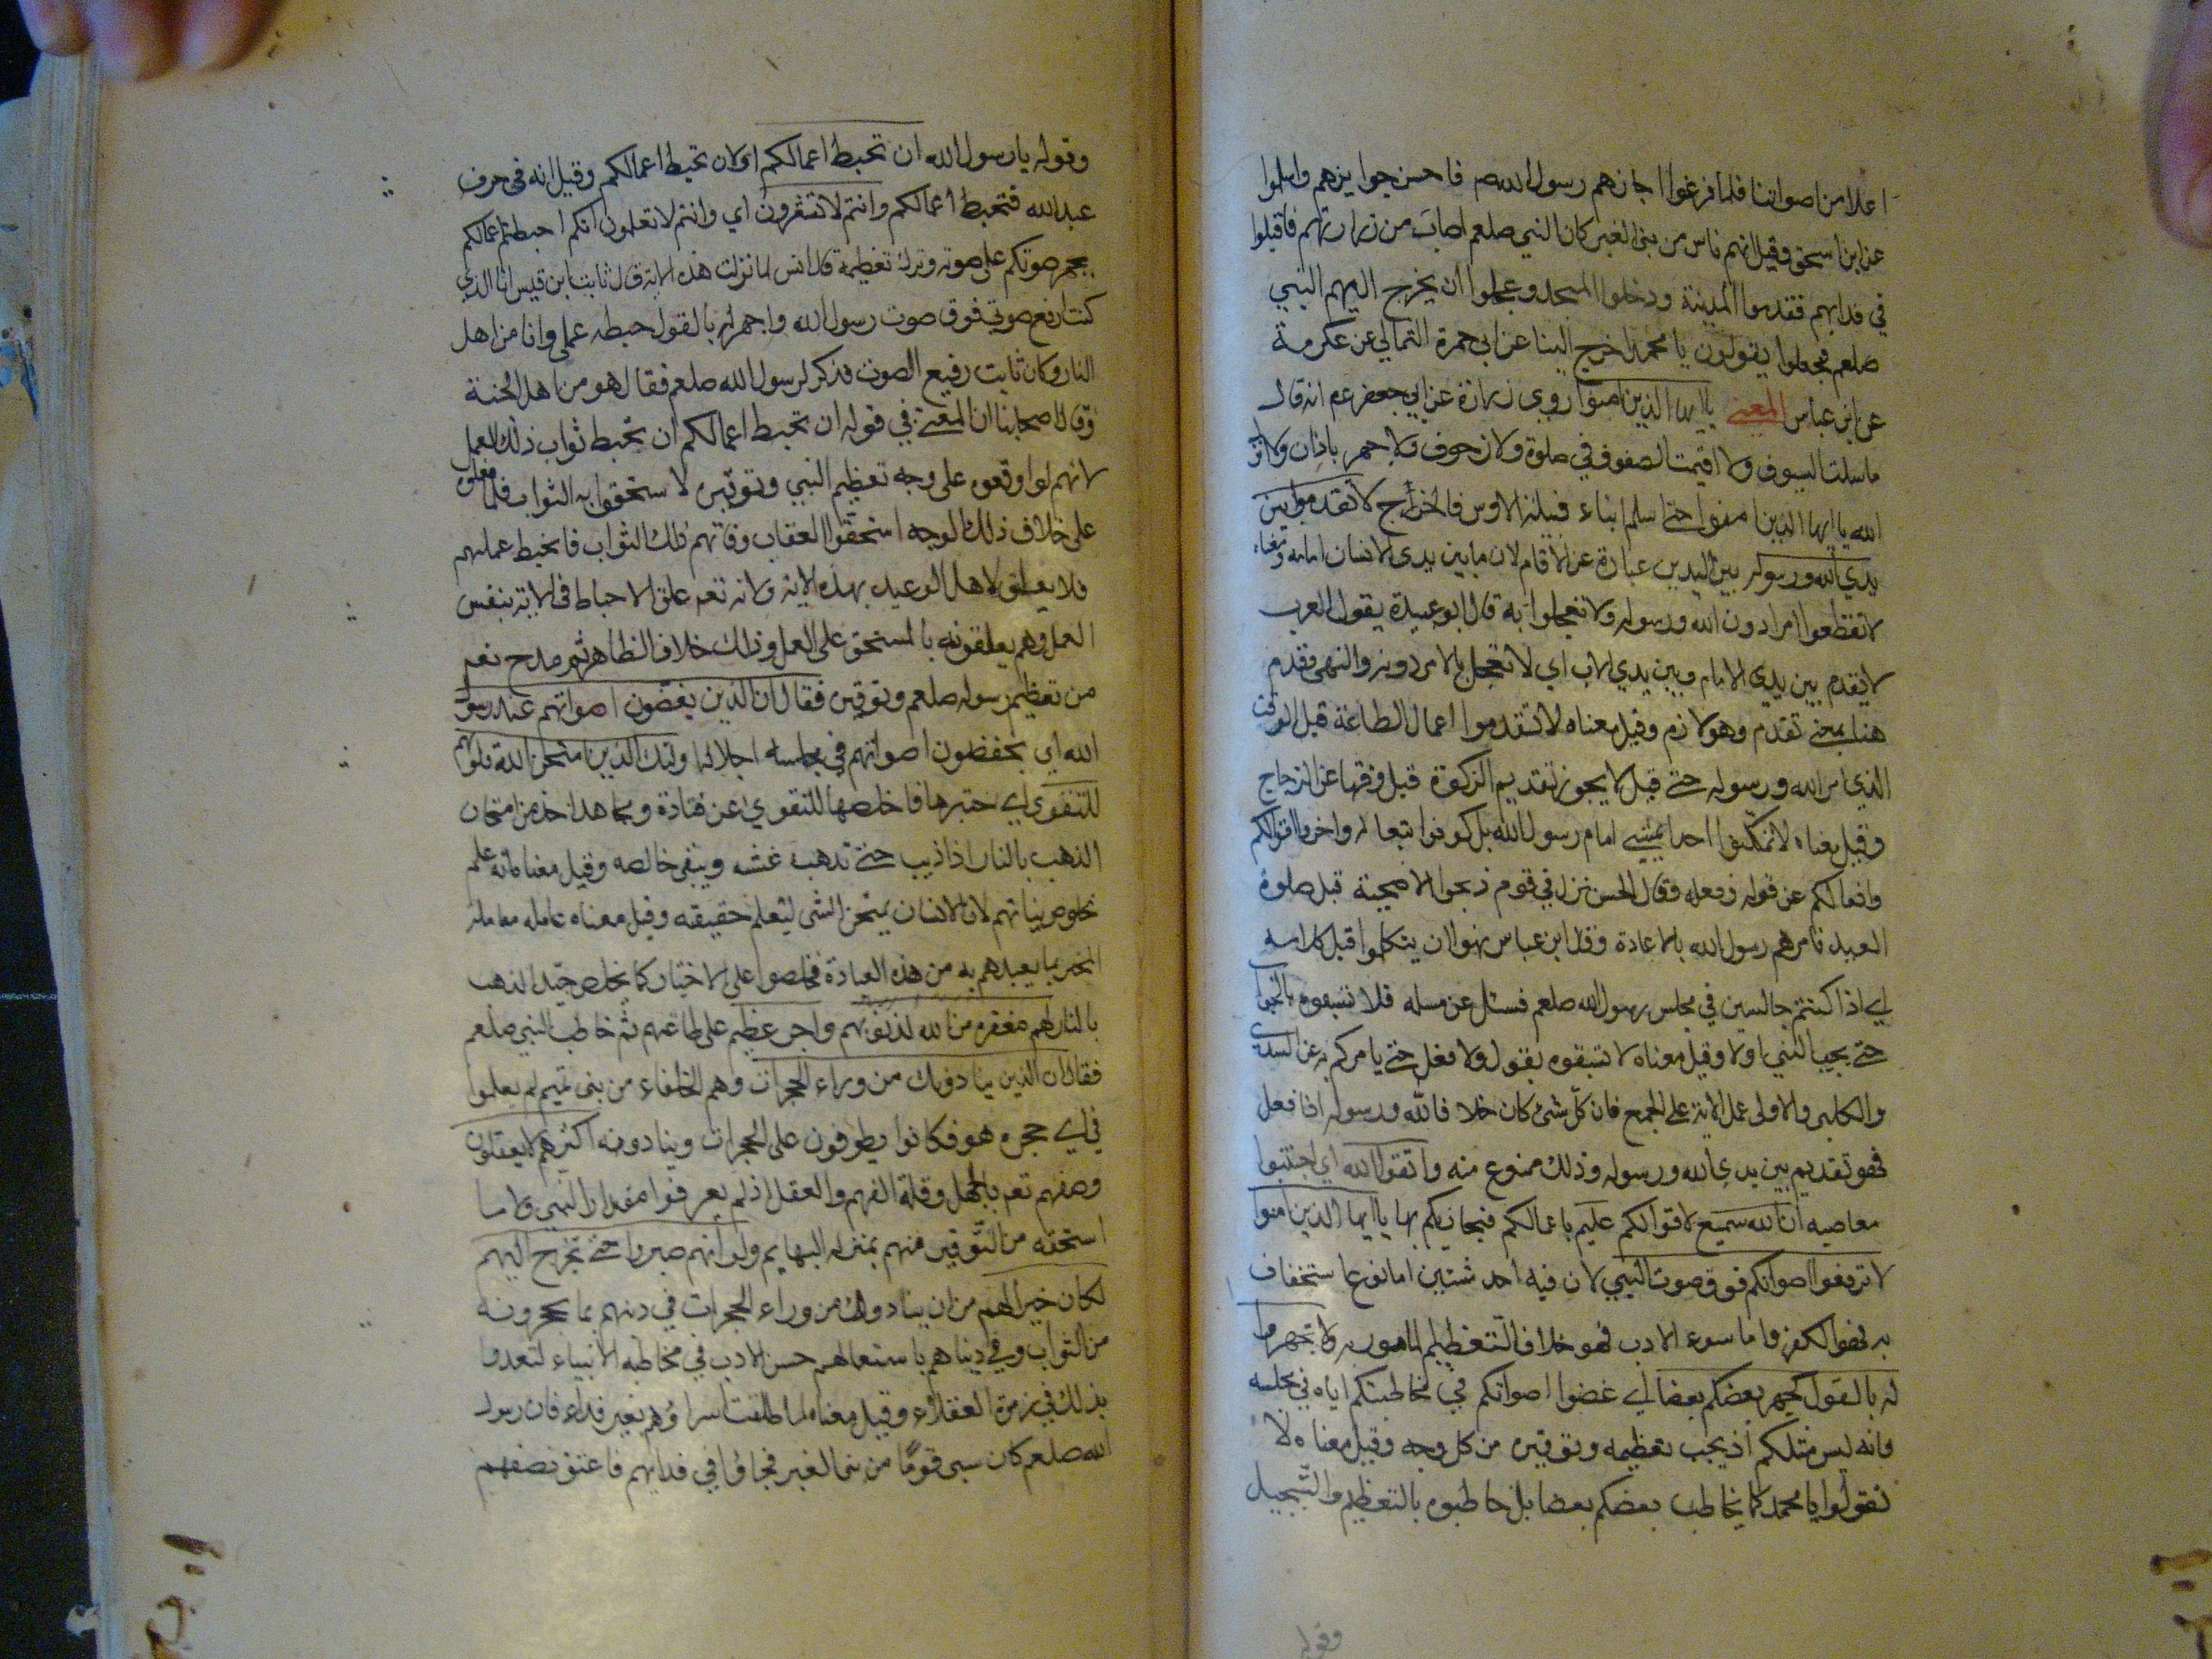 اعلا من اصواتنا فلما فرغوا اجازهم رسول الله ص فاحسن جوايزهم واسلموا
عن ابن اسحق وقيل انهم ناس من بني العنبر كان النبي صلعم اصاب من ذراريهم فاقبلوا
في فدايهم فقدموا المدينة ودخلوا المسجد وعجلوا ان يخرج اليهم النبي
صلعم فجعلوا يقولون يا محمد اخرج الينا عن ابي حمزة الثمالي عن عكرمة
عن ابن عباس المعنى يا ايها الذين امنوا روى زرارة عن ابي جعفر عم انه قال
ما سلت السيوف ولا اقيمت الصفوف في صلوة ولا زحوف ولا جهر باذان ولا انزل
الله يا ايها الذين امنوا حتى اسلم ابناء قبيلة الاوس والخزرج لا تقدموا بين
يدي الله ورسوله بين اليدين عبارة عن الامام لان ما بين يدى الانسان امامه ومعناه
لا تقطعوا امرا دون الله ورسوله ولا تعجلوا به قال ابو عبيدة يقول العرب
لا تقدم بين يدي الامام وبين يدي الاب اي لا تعجل بالامر دونه والنهى فقدم
هنا بمعنى تقدم وهو لازم وقيل معناه لا تقدموا اعمال الطاعة قبل الوقت
الذي امر الله ورسوله حتى قيل لا يجوز تقديم الزكوة قبل وقتها عن الزجاج
وقيل معناه لا تمكنوا احدا يمشي امام رسول الله بل كونوا تبعا له واخروا اقوالكم
وافعالكم عن قوله وفعله وقال الحسن نزل في قوم ذبحوا الاضحية قبل صلوة
العيد فامرهم رسول الله بالاعادة وقال ابن عباس نهوا ان يتكلموا قبل كلامه
اي اذا كنتم جالسين في مجلس رسول الله صلعم فسئل عن مسله فلا تسبقوه بالجواب
حتى يجيب النبي اولا وقيل معناه لا تسبقوه بقول ولا فعل حتى يامركم به عن السدي
والكلبى والاولى حمل الاية على الجمع فان كل شئ كان خلافا لله ورسوله اذا فعل
فهو تقديم بين يدي الله ورسوله وذلك ممنوع منه واتقوا الله اي اجتنبوا
معاصيه ان الله سميع لاقوالكم عليم باعمالكم فيجازيكم بها يا ايها الذين امنوا
لا ترفعوا اصواتكم فوق صوت النبي لان فيه احد شئين اما نوع استخفاف
به فهو الكفر واما سوء الادب فهو خلاف التعظيم المامور به ولا تجهروا
له بالقول كجهر بعضكم بعضا اي غضوا اصواتكم في مخاطبتكم اياه في مجلسه
فانه ليس مثلكم اذ يجب تعظيمه وتوقيره من كل وجه وقيل معناه لا
تقولوا يا محمد كما يخاطب بعضكم بعضا بل خاطبوه بالتعظيم والتبجيل
وقوله
وقوله يا رسول الله ان تحبط اعمالكم او لان تحبط اعمالكم وقيل انه في حرف
عبد الله فتحبط اعمالكم وانتم لا تشعرون اي وانتم لا تعلمون انكم احبطتم اعمالكم
بجهر صوتكم على صوته وترك تعظيمه قال انس لما نزلت هذه الاية قال ثابت ابن قيس انا الذي
كنت ارفع صوتي فوق صوت رسول الله واجهر له بالقول حبطه عملي وانا من اهل
النار وكان ثابت رفيع الصوت فذكر لرسول الله صلعم فقال هو من اهل الجنة
وقال اصحابنا ان المعنى في قوله ان تحبط اعمالكم ان تحبط ثواب ذلك العمل
لانهم لو اوقعوه على وجه تعظيم النبي وتوقيره لاستحقوا به الثواب فلما فعلوه
على خلاف ذلك الوجه استحقوا العقاب وفاتهم ذلك الثواب فانحبط عملهم
فلا يعلق لاهل الوعيد بهذه الاية ولانه تعم علق الاحباط في الاية بنفس
العمل وهم يعلقونه بالمستحق على العمل وذلك خلاف الظاهر ثم مدح تعم
من تعظيم رسوله صلعم وتوقيره فقال ان الذين يغضون اصواتهم عند رسول
الله اي يخفضون اصواتهم في مجلسه اجلالا اولئك الذين امتحن الله قلوبهم
للتقوى اي اختبرها فاخلصها للتقوي عن قتادة ومجاهد اخذ من امتحان
الذهب بالنار اذا ذيب حتى تذهب غشه ويبقى خالصه وقيل معناه انه علم
خلوص نياتهم لان الانسان يمتحن الشى ليعلم حقيقته وقيل معناه عاملهم معاملة
المختبر بما يعبدهم به من هذه العبادة فخلصوا على الاختبار كما يخلص جيد الذهب
بالنار لهم مغفره من الله لذنوبهم واجر عظيم على طاعتهم ثم خاطب النبي صلعم
فقال ان الذين ينادونك من وراء الحجرات وهم الجفاء من بنى تميم لم يعلموا
في اي حجره هو فكانوا يطوفون على الحجرات وينادونه اكثرهم لا يعقلون
وصفهم تعم بالجهل وقلة الفهم والعقل اذ لم يعرفوا مقدار النبي وما
استحقه من التوقير فهم بمنزلة البهايم ولو انهم صبروا حتى تخرج اليهم
لكان خيرا لهم من ان ينادونك من وراء الحجرات في دينهم بما يحرزونه
من الثواب وفي دنياهم باستعمالهم حسن الادب في مخاطبة الانبياء لتعدوا
بذلك في زمرة العقلاء وقيل معناه لما اطلقت اسراؤهم بغير فداء فان رسول
الله صلعم كان سبى قوما من بنى العنبر فجاؤا في فدايهم فاعتق نصفهم